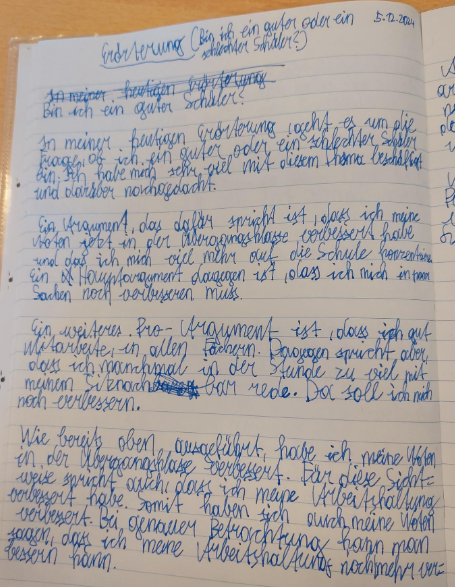 Erörterung (Bin ich ein guter oder ein
schlechter Schüler?)
5.12.2024
In meiner heutigen Erörterung
Bin ich ein guter Schüler?
In meiner heutigen Erörterung, geht es um die
Frage, ob ich ein guter oder ein schlechter Schüler
bin. Ich habe mich sehr viel mit diesem Thema beschäftigt
und darüber nachgedacht.
Ein Argument, das dafür spricht ist, dass ich meine
Noten jetzt in der Übergangsklasse verbessert habe
und das ich mich viel mehr auf die Schule konzentriere
Ein Hauptargument dagegen ist, dass ich mich in
Sachen noch verbesseren muss.
Ein weiteres Pro-Argument ist, dass ich gut
Mitarbeite, in allen Fächern. Dagegen spricht aber,
dass ich manchmal in der Stunde zu viel mit
meinem Sitznachbar rede. Da soll ich mich
noch verbessern.
Wie bereits oben ausgeführt, habe ich meine Noten
in der Übergangsklasse verbessert. Für diese Sicht=
weise spricht auch, dass ich meine Arbeitshaltung
verbessert habe. Somit haben sich auch meine Noten
verbessert. Bei genauer Betrachtung kann man
sagen, dass ich meine Arbeitshaltung noch mehr ver=
bessern kann.